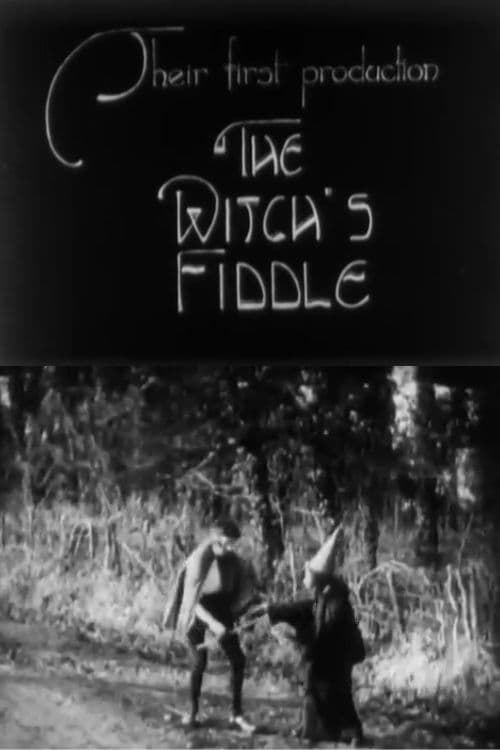 Their first production
THE
WITCH'S
FIDDLE